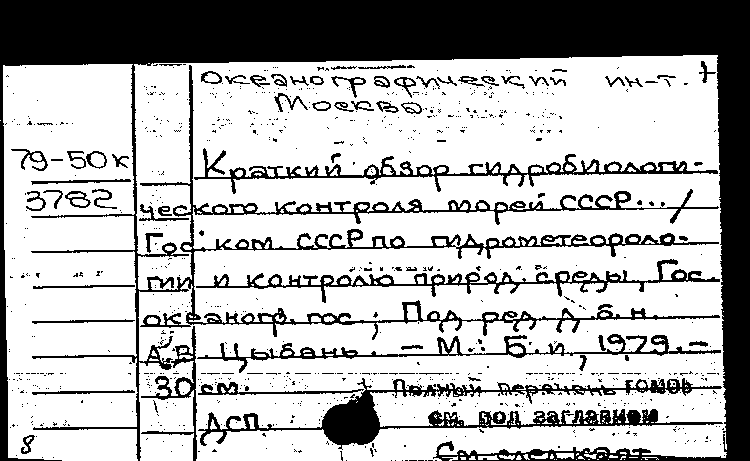 Океанографический ин-т.
Москва.
79-50к
3782
Краткий обзор гидробиологи-
ческого контроля морей СССР... /
Гос. ком. СССР по гидрометеороло-
гии и контролю природ. среды, Гос.
океаногр. гос ; Под ред. д. б. н.
А. В. Цыбань. – М. : Б. и., 1979. –
30 см. Полный перечень томов
ДСП. см. под заглавием
См. след карт.
8